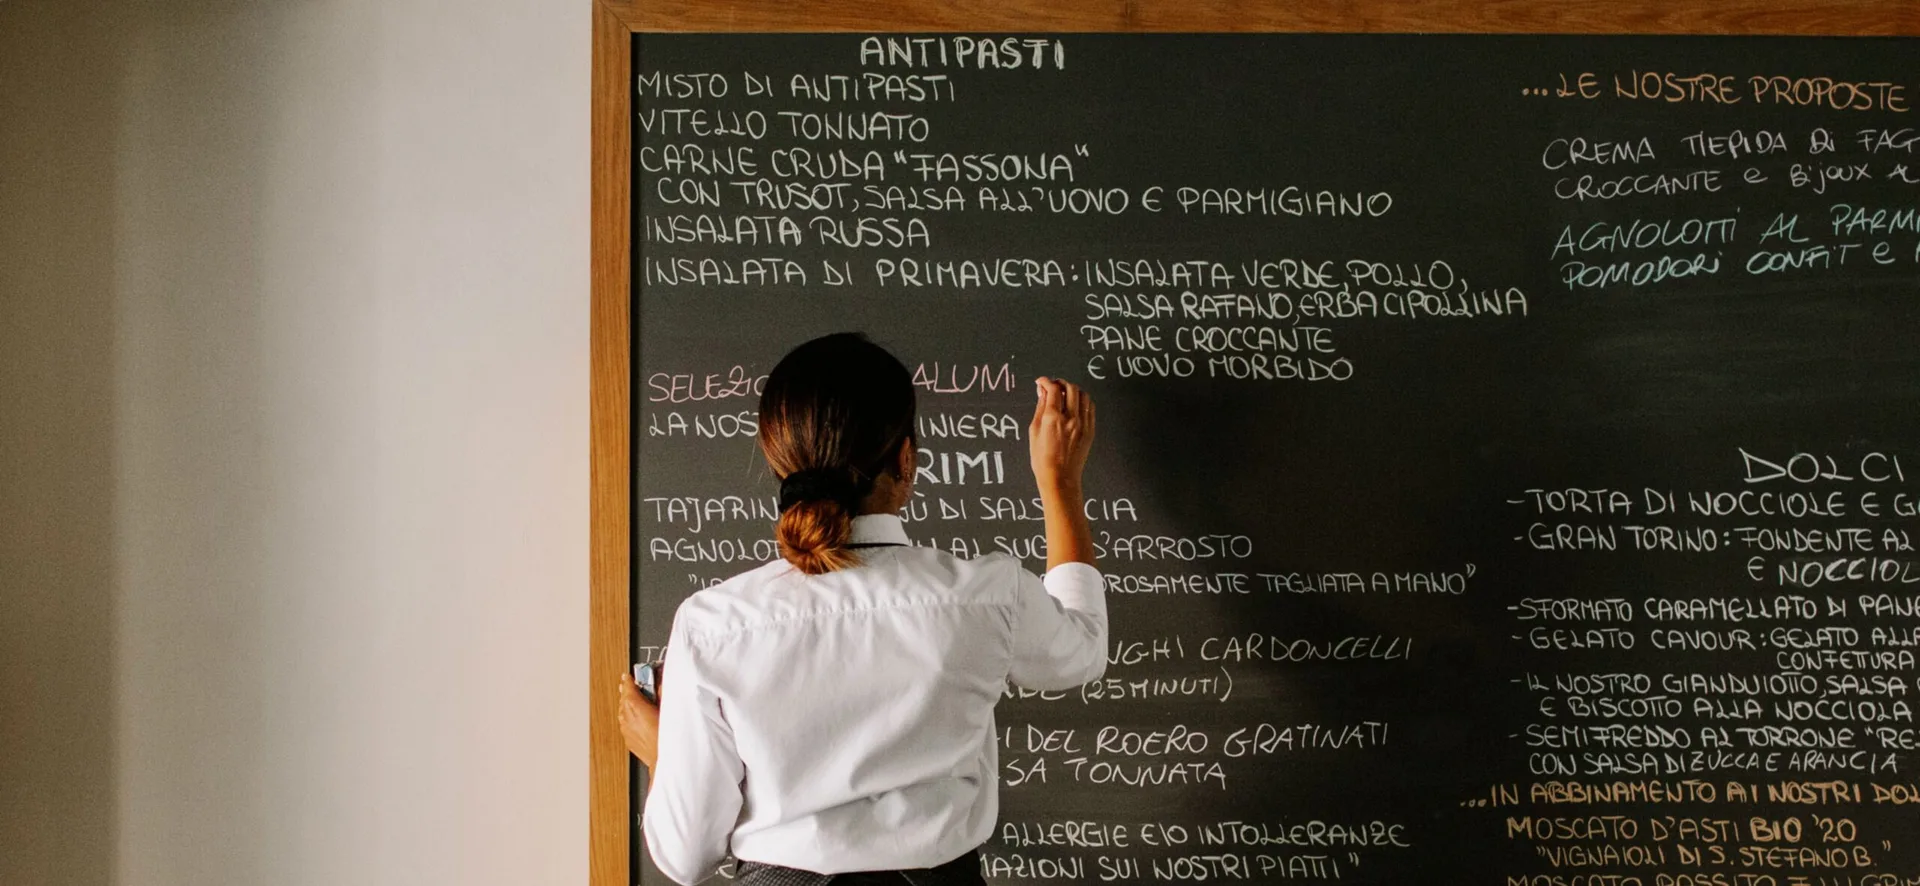 ANTIPASTI
MISTO DI ANTIPASTI
VITELLO TONNATO
CARNE CRUDA "FASSONA"
CON TRUSOT, SALSA ALL'UOVO E PARMIGIANO
INSALATA RUSSA
INSALATA DI PRIMAVERA: INSALATA VERDE, POLLO,
SALSA RAFANO, ERBA CIPOLLINA
PANE CROCCANTE
E UOVO MORBIDO
SELEZIO ALUMI
LA NOS INIERA
RIMI
TAJARIN GÙ DI SALS CIA
AGNOLOT AL SUG D'ARROSTO
OROSAMENTE TAGLIATA A MANO"
NGHI CARDONCELLI
(25 MINUTI)
I DEL ROERO GRATINATI
SA TONNATA
ALLERGIE E/O INTOLLERANZE
MAZIONI SUI NOSTRI PIATTI"
...LE NOSTRE PROPOSTE
CREMA TIEPIDA DI FAG
CROCCANTE e BIJOUX AL
AGNOLOTTI AL PARMI
POMODORI CONFIT E
DOLCI
-TORTA DI NOCCIOLE E G
-GRAN TORINO: FONDENTE AL
E NOCCIOL
-SFORMATO CARAMELLATO DI PANE
-GELATO CAVOUR: GELATO ALLA
CONFETURA
-IL NOSTRO GIANDUIOTTO, SALSA
E BISCOTTO ALLA NOCCIOLA
-SEMIFREDDO AL TORRONE "RE
CON SALSA DI ZUCCA E ARANCIA
...IN ABBINAMENTO AI NOSTRI DOL
MOSCATO D'ASTI BIO '20
"VIGNAIOLI DI S. STEFANO B."
MOSCATO PASSITO